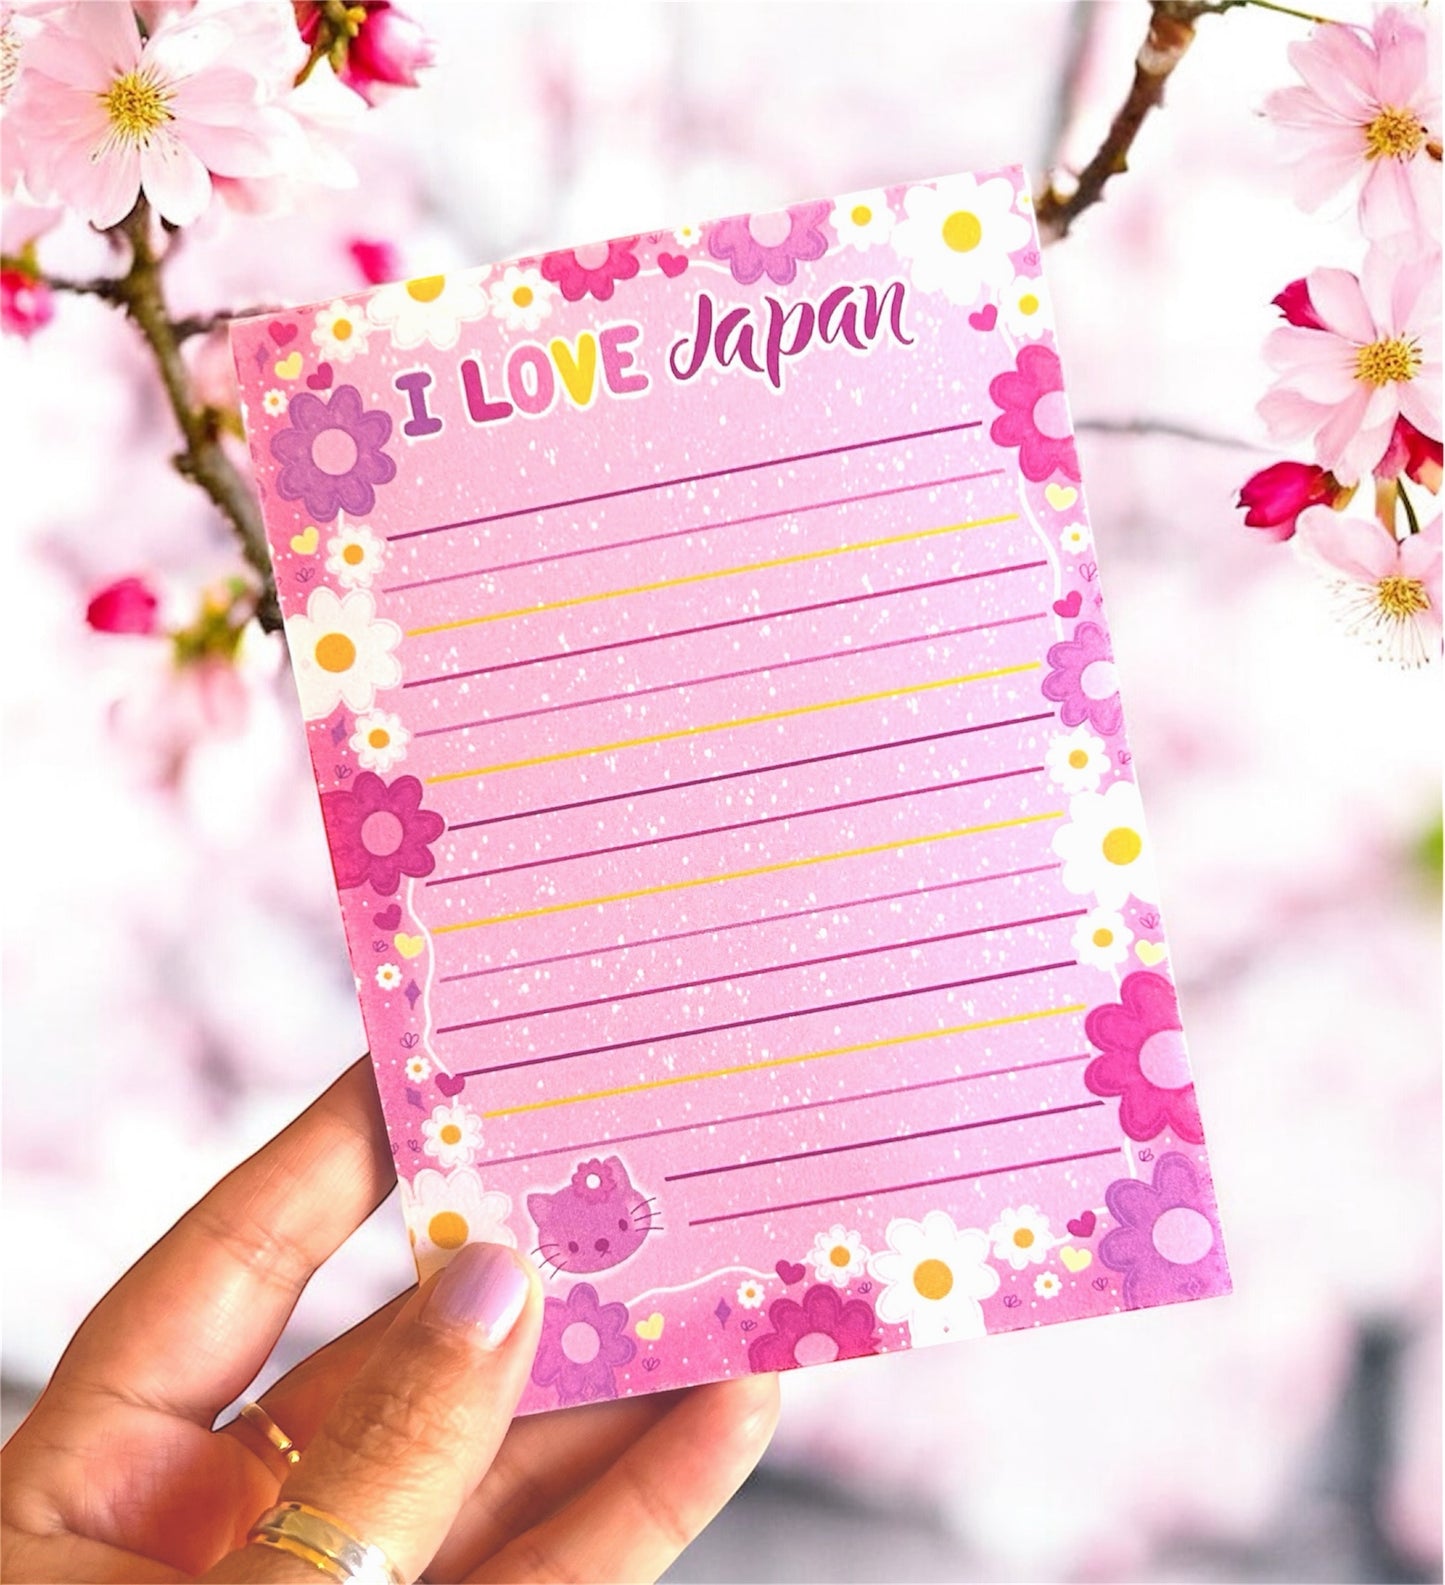 I LOVE Japan